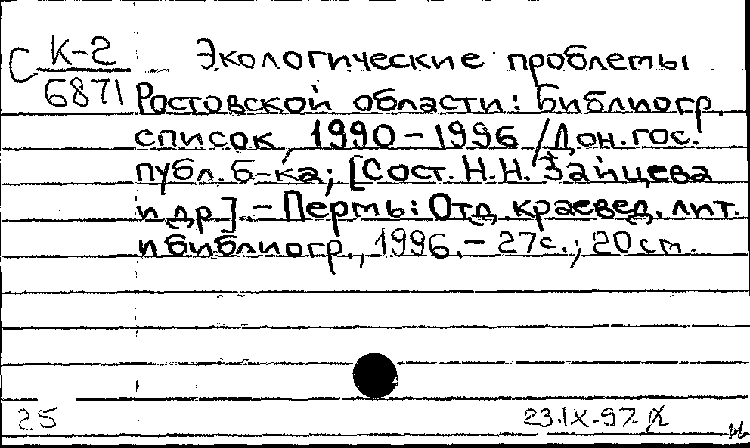 С К-2 Экологические проблемы
6871 Ростовской области: Библиогр.
список, 1990-1996 / Дон. гос.
публ. б-ка; [Сост. Н.Н. Зайцева
и др]. - Пермь: Отд. краевед. лит.
и библиогр., 1996. - 27с.; 20 см.
25 23.IX.97